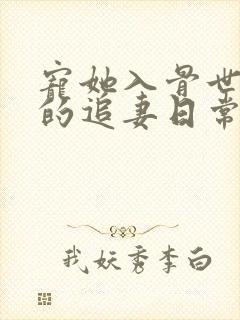 寵她入骨世
的追妻日常
我妖秀李白